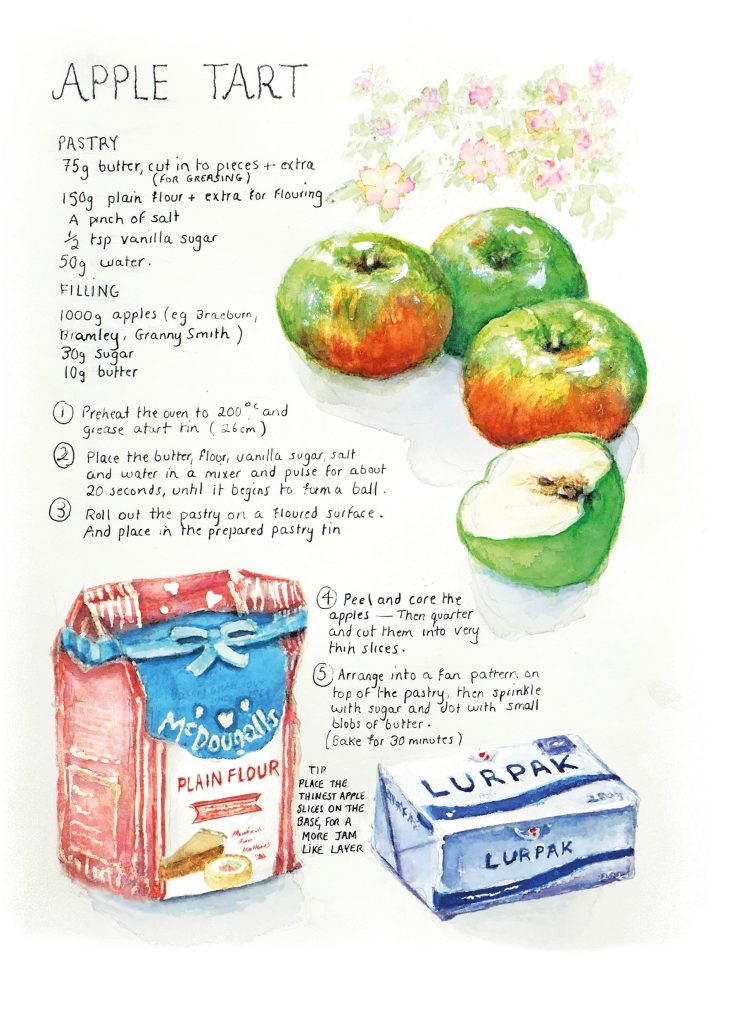 APPLE TART
PASTRY
75g butter, cut in to pieces + extra
(FOR GREASING)
150g plain flour + extra for flouring
A pinch of salt
½ tsp vanilla sugar
50g water.
FILLING
1000g apples (eg Braeburn,
Bramley, Granny Smith)
30g sugar
10g butter
① Preheat the oven to 200°C and
grease a tart tin (26cm)
② Place the butter, flour, vanilla sugar, salt
and water in a mixer and pulse for about
20 seconds, until it begins to form a ball.
③ Roll out the pastry on a floured surface.
And place in the prepared pastry tin
④ Peel and core the
apples — Then quarter
and cut them into very
thin slices.
⑤ Arrange into a fan pattern on
top of the pastry, then sprinkle
with sugar and dot with small
blobs of butter.
(Bake for 30 minutes)
TIP
PLACE THE
THINEST APPLE
SLICES ON THE
BASE, FOR A
MORE JAM
LIKE LAYER
McDougalls
PLAIN FLOUR
LURPAK
LURPAK